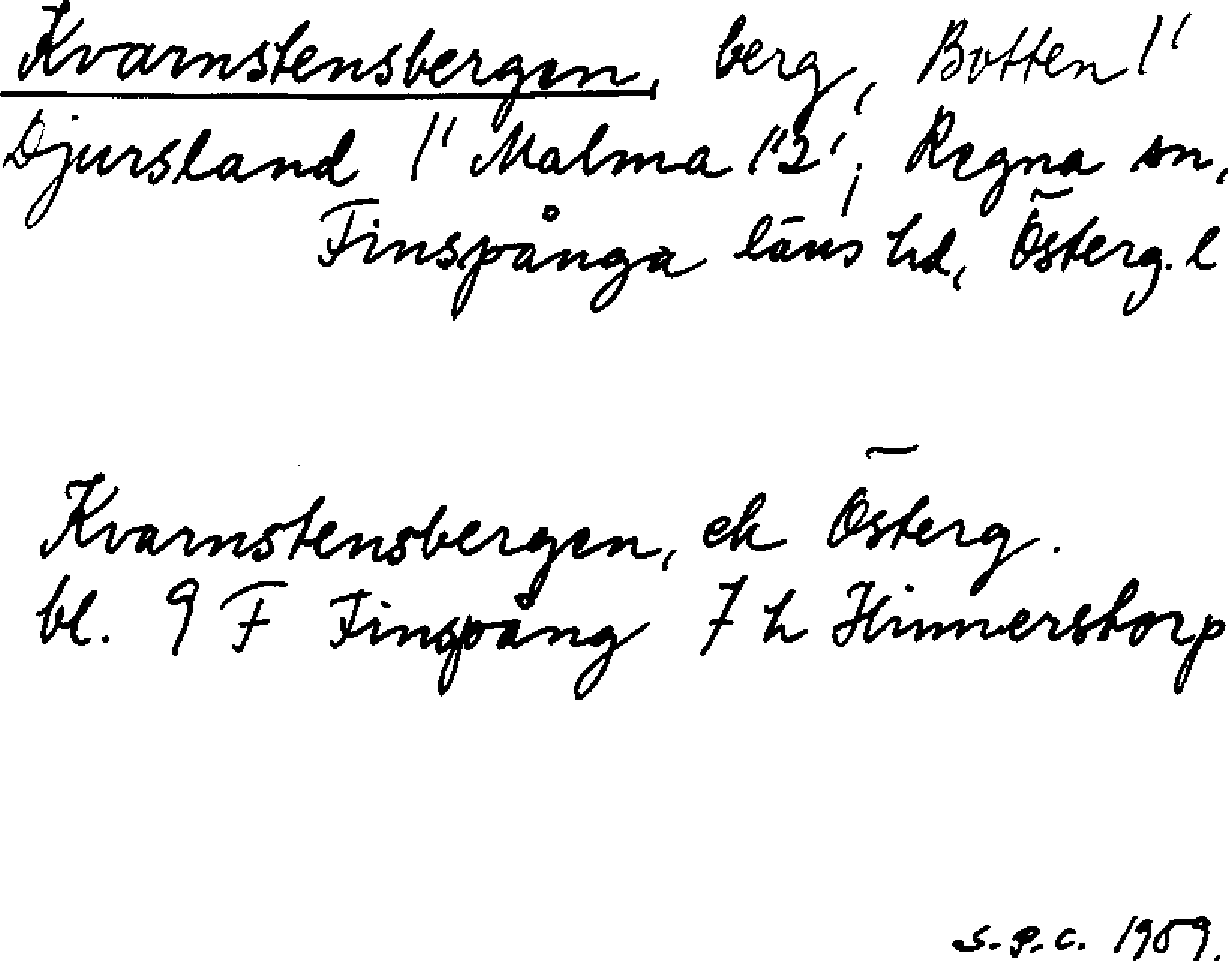 Kvarnstensbergen, berg, Botten 1'
Djursland 1' Malma 1'2', Regna sn,
Finspånga läns hd, Österg. l
Kvarnstensbergen, ek Österg.
bl. 9 F Finspång 7 h Hinnerstorp
S.P.C. 1989.